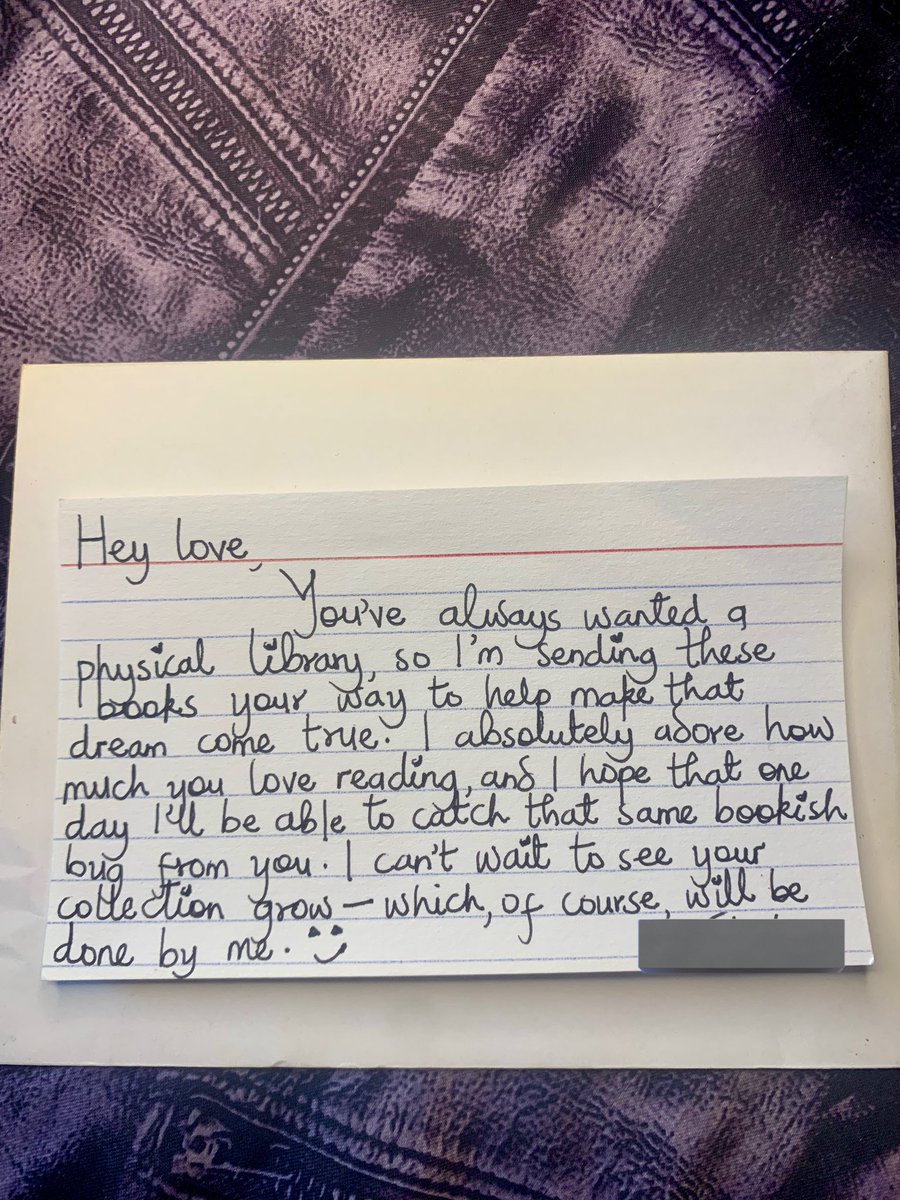 Hey love,
You've always wanted a
physical library, so I'm sending these
books your way to help make that
dream come true. I absolutely adore how
much you love reading, and I hope that one
day I'll be able to catch that same bookish
bug from you. I can't wait to see your
collection grow – which, of course, will be
done by me.